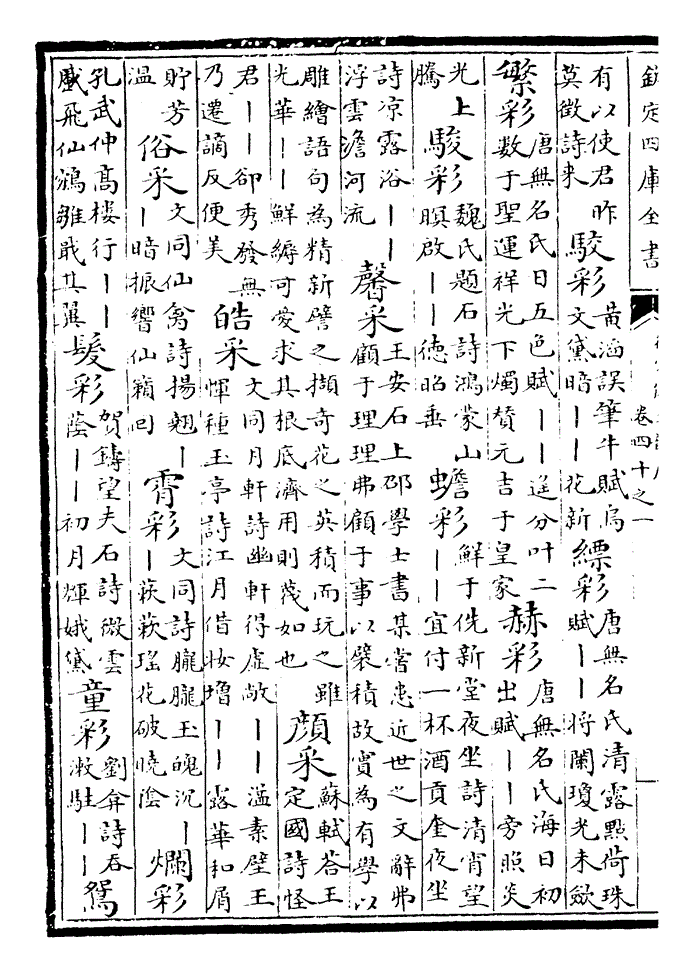 欽定四庫全書
卷四十之一
有以使君昨莫徵詩来駮彩黄滔誤筆牛賦烏文黛暗||花新縹彩唐無名氏清露點荷珠賦||将闌瓊光未歛
繁彩唐無名氏日五色賦||遥分叶二數于聖運祥光下燭賛元吉于皇家赫彩唐無名氏海日初出賦||旁照炎
光上騰駿彩魏氏題石詩鴻蒙山暝啟||德昭垂蟾彩鮮于侁新堂夜坐詩清宵望||宜付一杯酒貢奎夜坐
詩凉露浴||浮雲澹河流馨采王安石上邵學士書某嘗患近世之文辭弗顧于理理弗顧于事以襞積故實為有學以
雕繪語句為精新譬之擷奇花之英積而玩之雖光華||鮮縟可愛求其根底濟用則蔑如也顔采蘇軾荅王定國詩怪
君||卻秀發無乃遷謫反便美皓采文同月軒詩幽軒得虚敞||溢素壁王惲種玉亭詩江月借妝增||露華和屑
貯芳温俗采文同仙禽詩揚翘||暗振響仙籟回霄彩文同詩朧朧玉魄沉||蔌蔌瑶花破曉陰爛彩
孔武仲髙樓行||盛飛仙鵷雛戢其翼髮彩賀鑄望夫石詩微雲蔭||初月輝娥黛童彩劉弇詩春漱駐||鴛